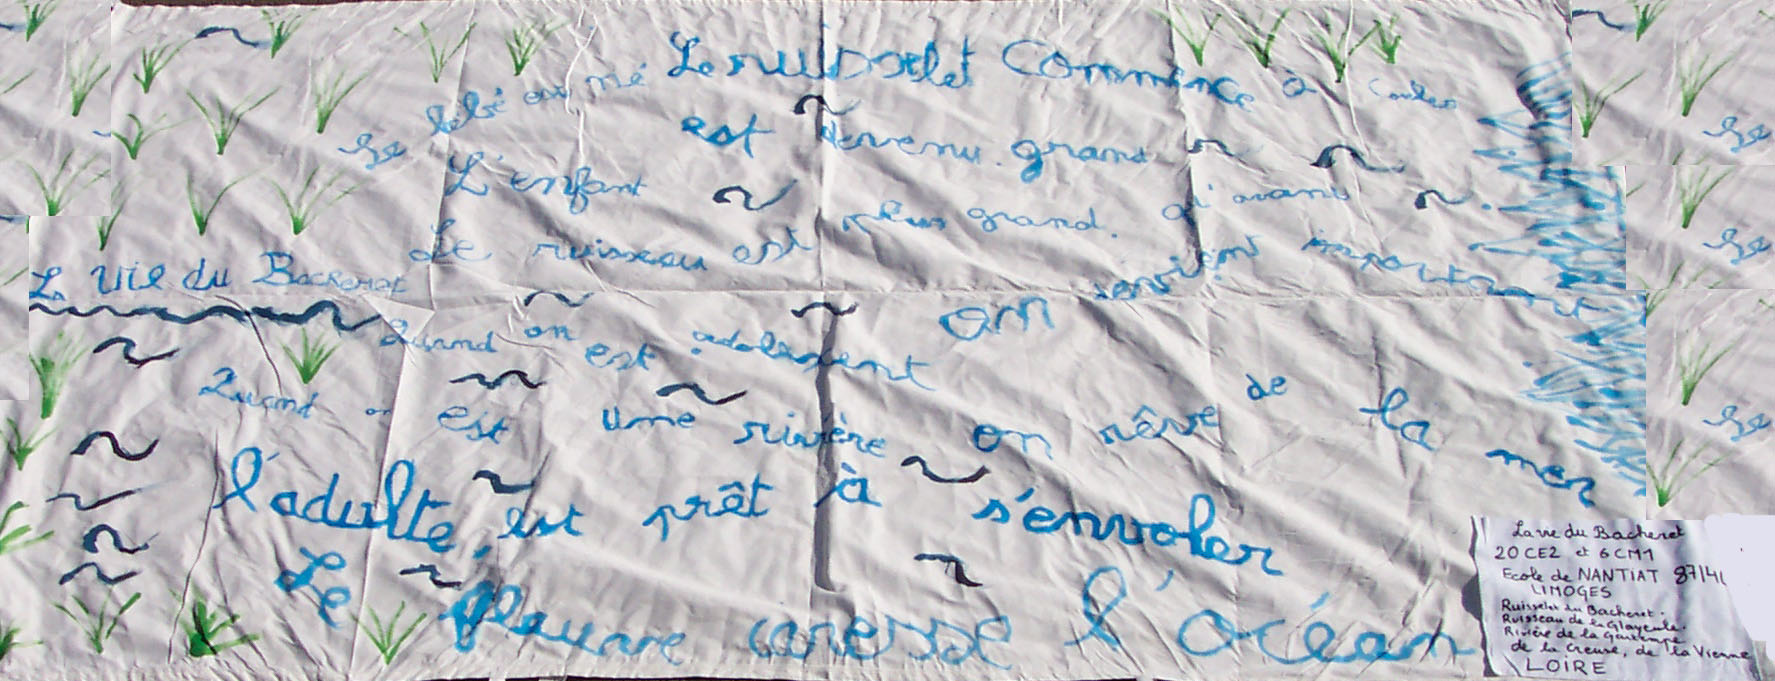 La vie du Bacheret
Le bébé est né Le ruisselet commence à couler
L'enfant est devenu grand
Le ruisseau est plus grand. qu'avant
Quand on est adolescent on devient important
Quand on est une rivière on rêve de la mer
l'adulte, est prêt à s'envoler
Le fleuve caresse l'océan
La vie du Bacheret
20 CE2 et 6 CM1
Ecole de NANTIAT
LIMOGES
Ruisselet du Bacheret.
Ruisseau de la Glayeule.
Rivière de la Gartempe
de la Creuse, de la Vienne
LOIRE